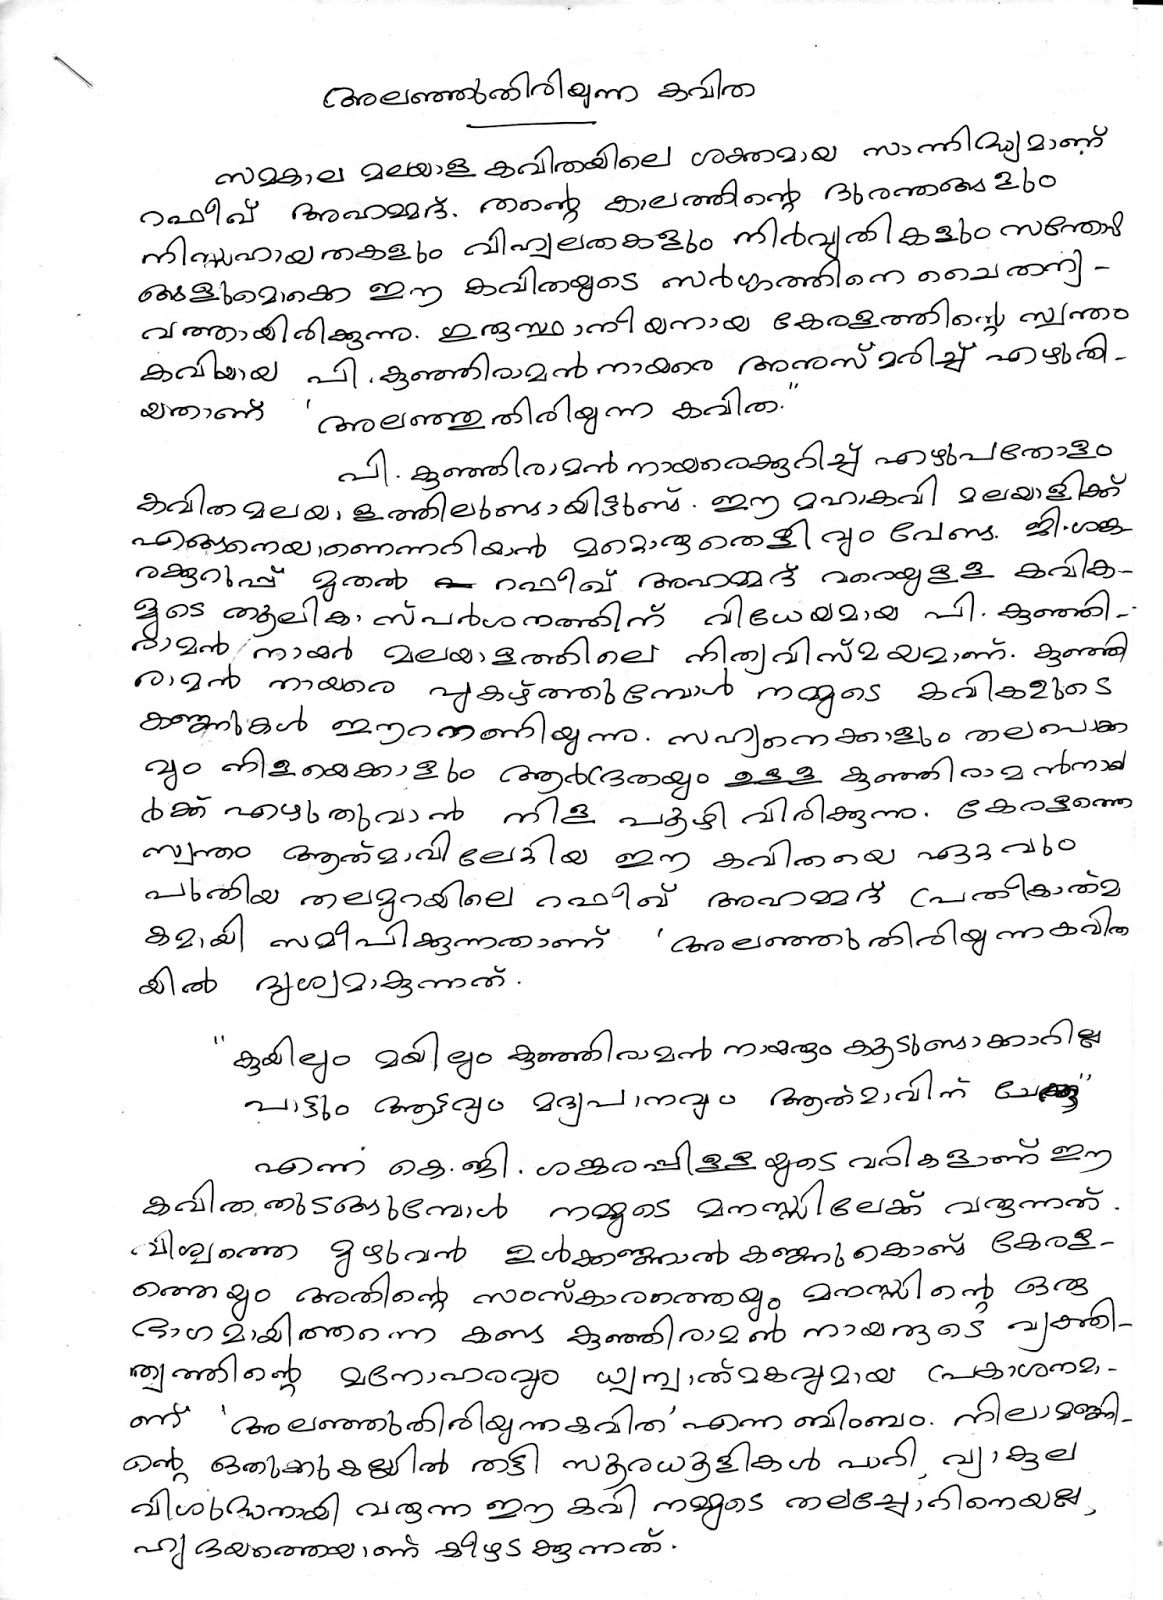 അലഞ്ഞുതിരിയുന്ന കവിത
സമകാല മലയാള കവിതയിലെ ശക്തമായ സാന്നിദ്ധ്യമാണ്
റഫീഖ് അഹമ്മദ്. തന്റെ കാലത്തിന്റെ ദുരന്തങ്ങളും
നിസ്സഹായതകളും വിഹ്വലതകളും നിർവൃതികളും സന്തോഷ
ങ്ങളുമൊക്കെ ഈ കവിതയുടെ സർഗ്ഗത്തിനെ ചൈതന്യ-
വത്തായിരിക്കുന്നു. ഗുരുസ്ഥാനീയനായ കേരളത്തിന്റെ സ്വന്തം
കവിയായ പി. കുഞ്ഞിരാമൻ നായരെ അനുസ്മരിച്ച് എഴുതി-
യതാണ് 'അലഞ്ഞുതിരിയുന്ന കവിത."
പി. കുഞ്ഞിരാമൻ നായരെക്കുറിച്ച് എഴുപതോളം
കവിത മലയാളത്തിലുണ്ടായിട്ടുണ്ട്. ഈ മഹാകവി മലയാളിക്ക്
എങ്ങനെയാണെന്നറിയാൻ മറ്റൊരു തെളിവും വേണ്ട. ജി. ശങ്ക
രക്കുറുപ്പ് മുതൽ റഫീഖ് അഹമ്മദ് വരെയുള്ള കവിക-
ളുടെ തൂലികാ സ്പർശനത്തിന് വിധേയമായ പി. കുഞ്ഞി-
രാമൻ നായർ മലയാളത്തിലെ നിത്യവിസ്മയമാണ്. കുഞ്ഞി
രാമൻ നായരെ പുകഴ്ത്തുമ്പോൾ നമ്മുടെ കവികളുടെ
കണ്ണുകൾ ഈറനണിയുന്നു. സഹ്യനെക്കാളും തലപൊക്ക
വും നിളയെക്കാളും ആർദ്രതയും ഉള്ള കുഞ്ഞിരാമൻനായ
ർക്ക് എഴുതുവാൻ നിള പൂഴി വിരിക്കുന്നു. കേരളത്തെ
സ്വന്തം ആത്മാവിലേറ്റിയ ഈ കവിതയെ ഏറ്റവും
പുതിയ തലമുറയിലെ റഫീഖ് അഹമ്മദ് പ്രതീകാത്മ
കമായി സമീപിക്കുന്നതാണ് 'അലഞ്ഞുതിരിയുന്ന കവിത
യിൽ ദൃശ്യമാകുന്നത്.
"കുയിലും മയിലും കുഞ്ഞിരാമൻ നായരും കൂടുണ്ടാക്കാറില്ല
പാട്ടും ആട്ടവും മദ്യപാനവും ആത്മാവിന്
എന്ന് കെ.ജി. ശങ്കരപ്പിള്ളയുടെ വരികളാണ് ഈ
കവിത തുടങ്ങുമ്പോൾ നമ്മുടെ മനസ്സിലേക്ക് വരുന്നത്.
വിശ്വത്തെ മുഴുവൻ ഉൾക്കണ്ണാൽ കണ്ണുകൊണ്ട് കേരള-
ത്തെയും അതിന്റെ സംസ്കാരത്തെയും മനസ്സിന്റെ ഒരു
ഭാഗമായിത്തന്നെ കണ്ട കുഞ്ഞിരാമൻ നായരുടെ വ്യക്തി-
ത്വത്തിന്റെ മനോഹരവും ധ്വന്യാത്മകവുമായ പ്രകാശനമാ-
ണ് 'അലഞ്ഞുതിരിയുന്ന കവിത' എന്ന ബിംബം. നിലാമഞ്ഞി-
ന്റെ ഒതുക്കുകല്ലിൽ തട്ടി സൂരധൂളികൾ പാറി, വ്യാകുല
വിശുദ്ധനായി വരുന്ന ഈ കവി നമ്മുടെ തലച്ചോറിനെയല്ല,
ഹൃദയത്തെയാണ് കീഴടക്കുന്നത്.